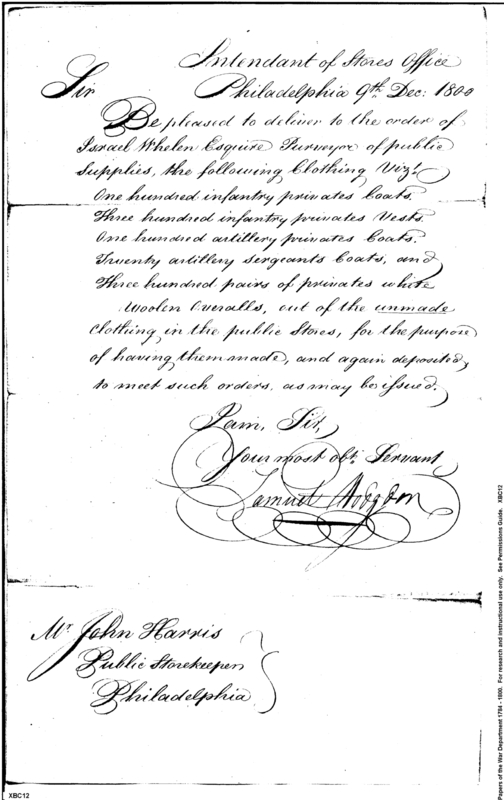 Intendant of Stores Office
Philadelphia 9th Dec: 1800
Sir
Be pleased to deliver to the order of
Israel Whelen Esquire Purveyor of public
Supplies, the following Clothing Vizt.
One hundred infantry privates Coats.
Three hundred infantry privates Vests.
One hundred artillery privates Coats.
Twenty artillery sergeants Coats, and
Three hundred pairs of privates white
Woolen Overalls, out of the unmade
Clothing in the public Stores, for the purpose
of having them made, and again deposited,
to meet such orders, as may be issued.
I am, Sir,
Your most obt. Servant
Samuel Hodgdon
Mr. John Harris
Public Storekeeper
Philadelphia
XBC12
Papers of the War Department 1784 - 1800. For research and instructional use only. See Permissions Guide. XBC12